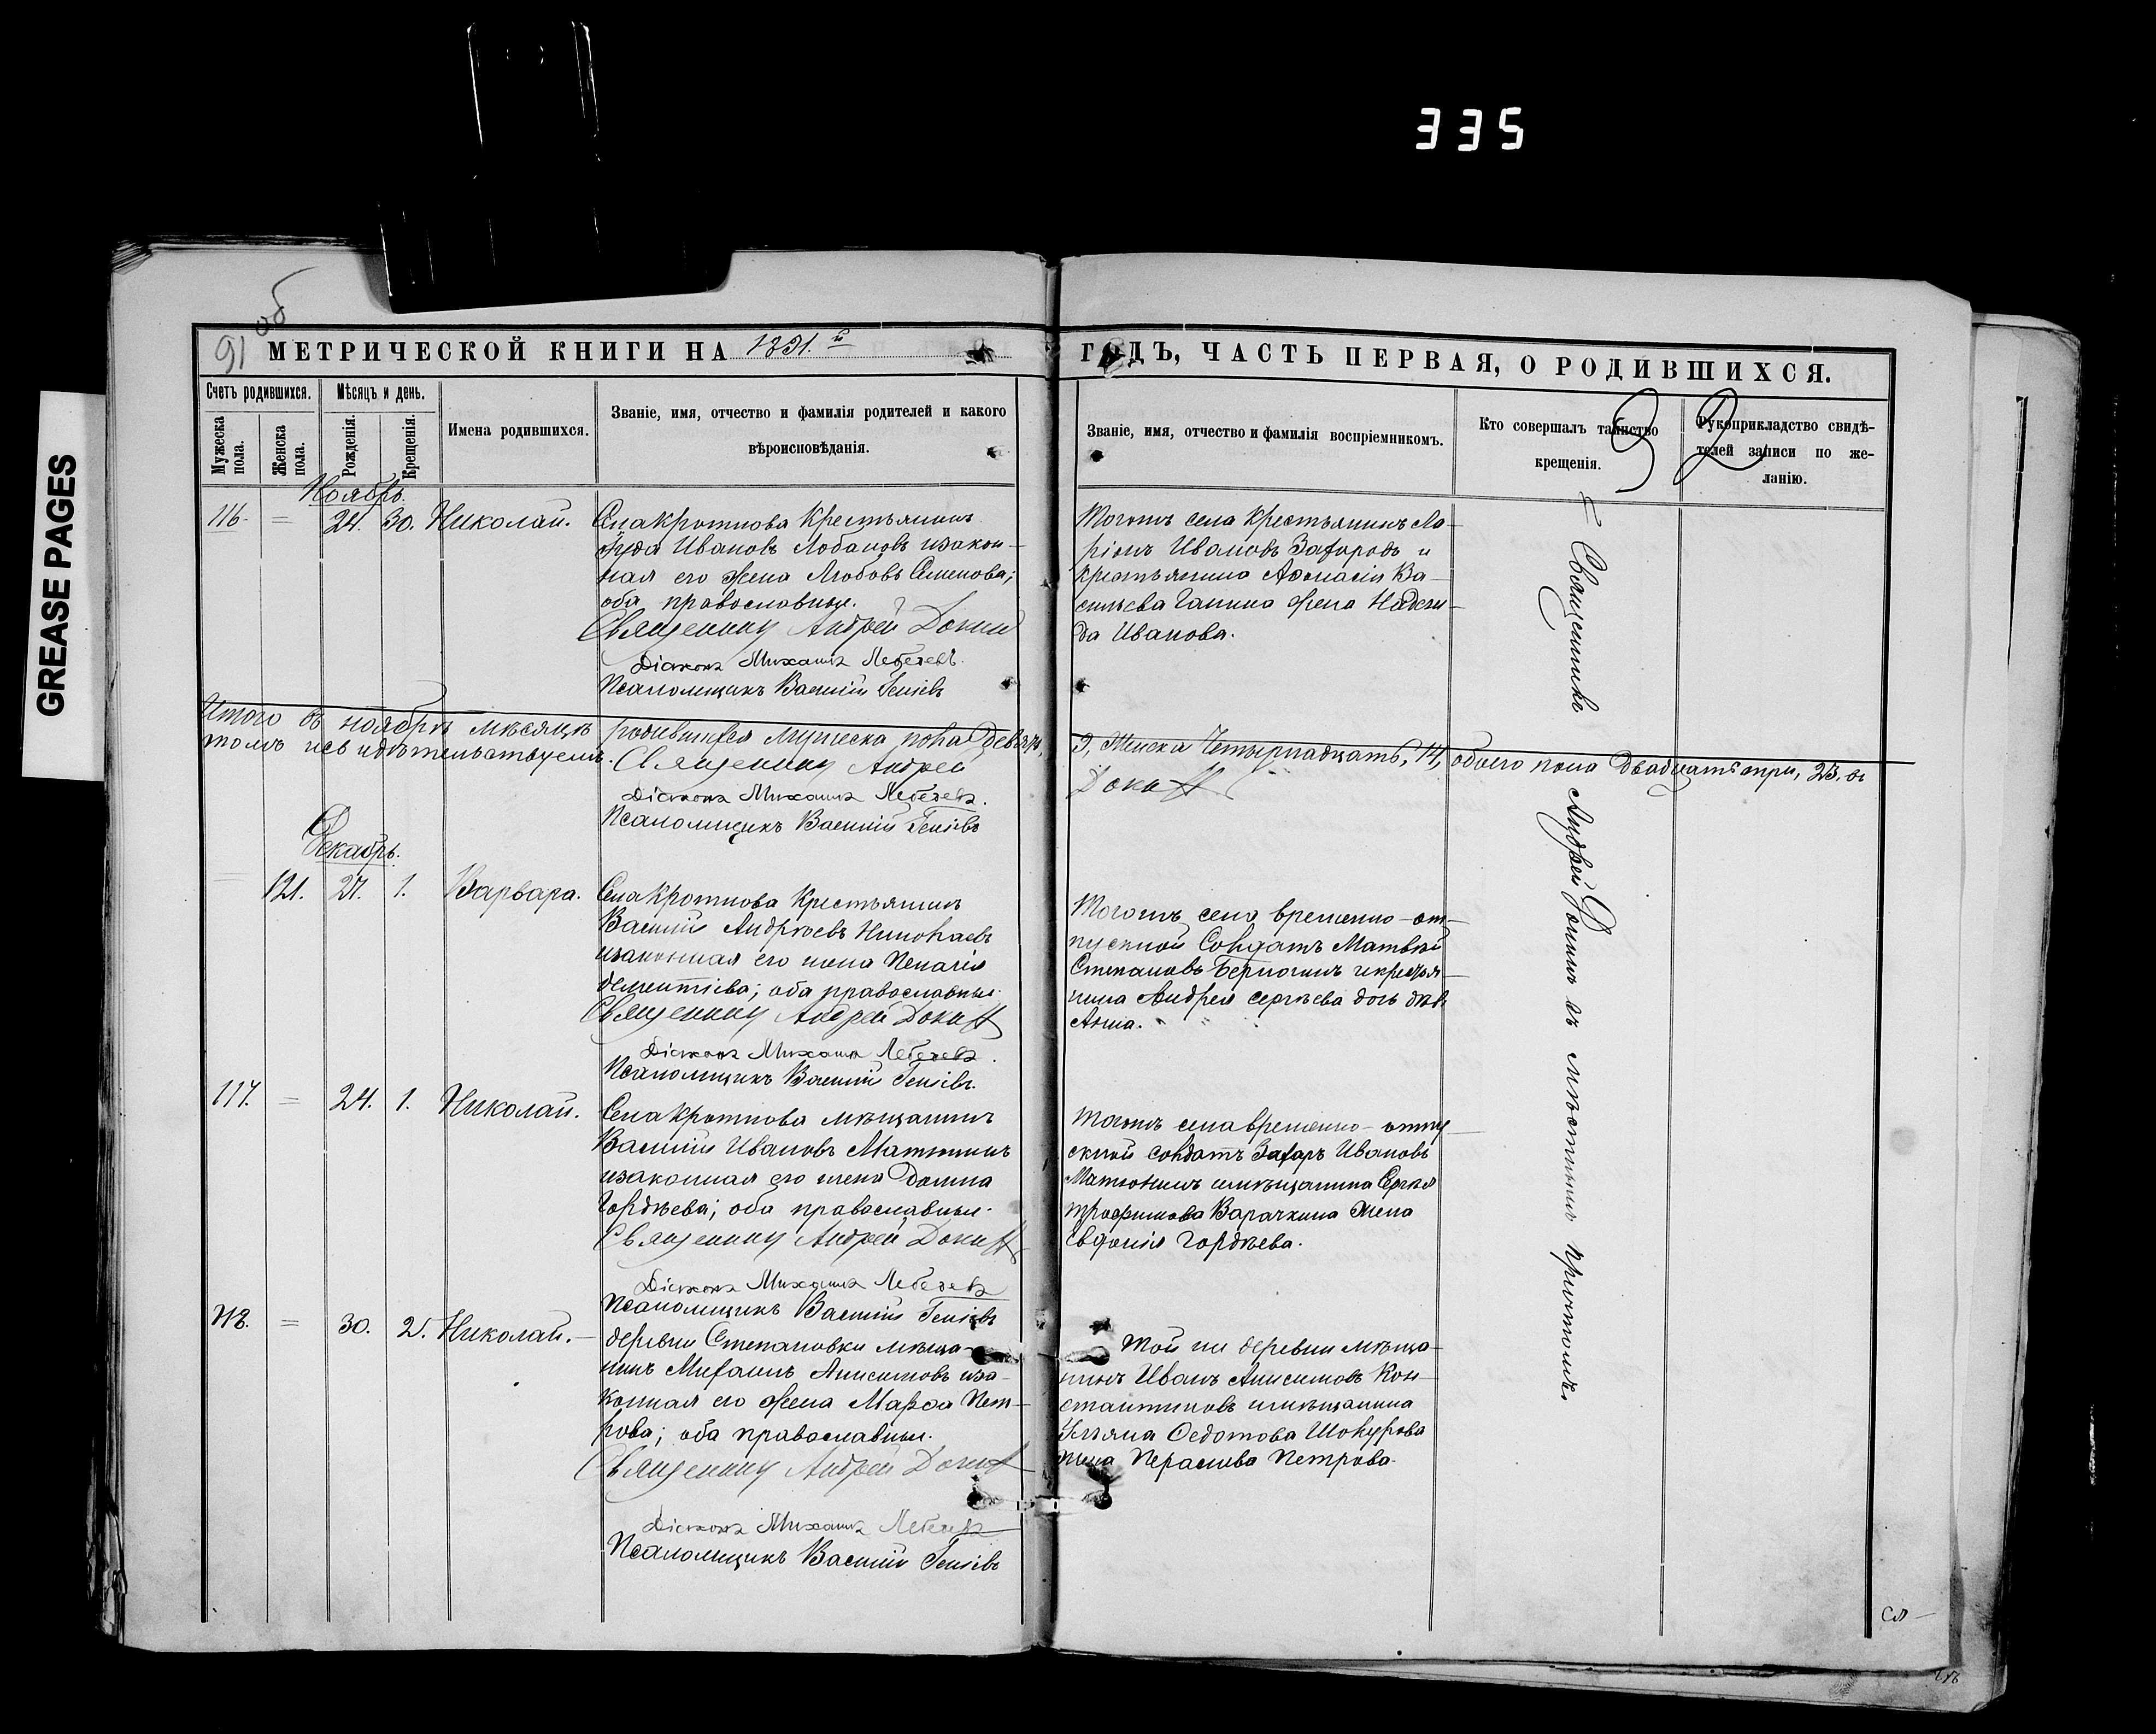 335
GREASE PAGES
91 об
МЕТРИЧЕСКОЙ КНИГИ НА 1891.й ГОДЪ, ЧАСТЬ ПЕРВАЯ, О РОДИВШИХСЯ.
92
Счетъ родившихся.
Мужеска пола.
Женска пола.
Мѣсяцъ и день.
Рожденія.
Крещенія.
Имена родившихся.
Званіе, имя, отчество и фамилія родителей и какого
вѣроисповѣданія.
Званіе, имя, отчество и фамилія воспріемникомъ.
Кто совершалъ таинство
крещенія.
Рукоприкладство свидѣ-
телей записи по же-
ланію.
Ноябрь.
116. = 24. 30. Николай.
Села Кроткова Крестьянинъ
Ивановъ Лобановъ изакон-
ная его жена Любовь Семенова;
оба православные.
Священникъ Андрей
Діаконъ Михаилъ Лебедевъ.
Псаломщикъ Василій
Тогожъ села Крестьянинъ Ла-
ріонъ Ивановъ и
крестьянина Аѳанасія Ва-
сильева Ганина жена Надеж-
да Иванова.
Итого въ ноябрѣ мѣсяцѣ родившихся мужеска пола Девять, 9, Женска Четырнадцать, 14, обоего пола Двадцать три, 23. въ
томъ и свидѣтельствуемъ. Священникъ Андрей
Діаконъ Михаилъ Лебедевъ.
Псаломщикъ Василій
Декабрь.
121. 27. 1. Варвара.
Села Кроткова Крестьянинъ
Василій Андреевъ Николаевъ
изаконная его жена Пелагія
Дементіева; оба православные.
Священникъ Андрей
Діаконъ Михаилъ Лебедевъ.
Псаломщикъ Василій
Тогожъ села временно-от-
пускной Солдатъ Матвѣй
Степановъ икрестья-
нина Андрея Сергѣева дочь дѣв.
Анна.
117. = 24. 1. Николай.
Села Кроткова мѣщанинъ
Василій Ивановъ Матюнинъ
изаконная его жена Домна
Гордѣева; оба православные.
Священникъ Андрей
Діаконъ Михаилъ Лебедевъ
Псаломщикъ Василій
Тогожъ села временно-отпу-
скной солдатъ Захаръ Ивановъ
Матюнинъ имѣщанина Сергѣя
Трофимова Карачкина жена
Евдокія Гордѣева.
118. = 30. 2. Николай.
деревни Степановки мѣща-
нинъ Михаилъ Анисимовъ иза-
конная его жена Марѳа Пет-
рова; оба православные.
Священникъ Андрей
Діаконъ Михаилъ Лебедевъ
Псаломщикъ Василій
Той же деревни мѣща-
нинъ Иванъ Анисимовъ Кон-
стантиновъ имѣщанина
Ульяна Ѳедотова Шокурова
жена Петрова.
Священникъ Андрей въ мѣстнымъ причтомъ.
ся-